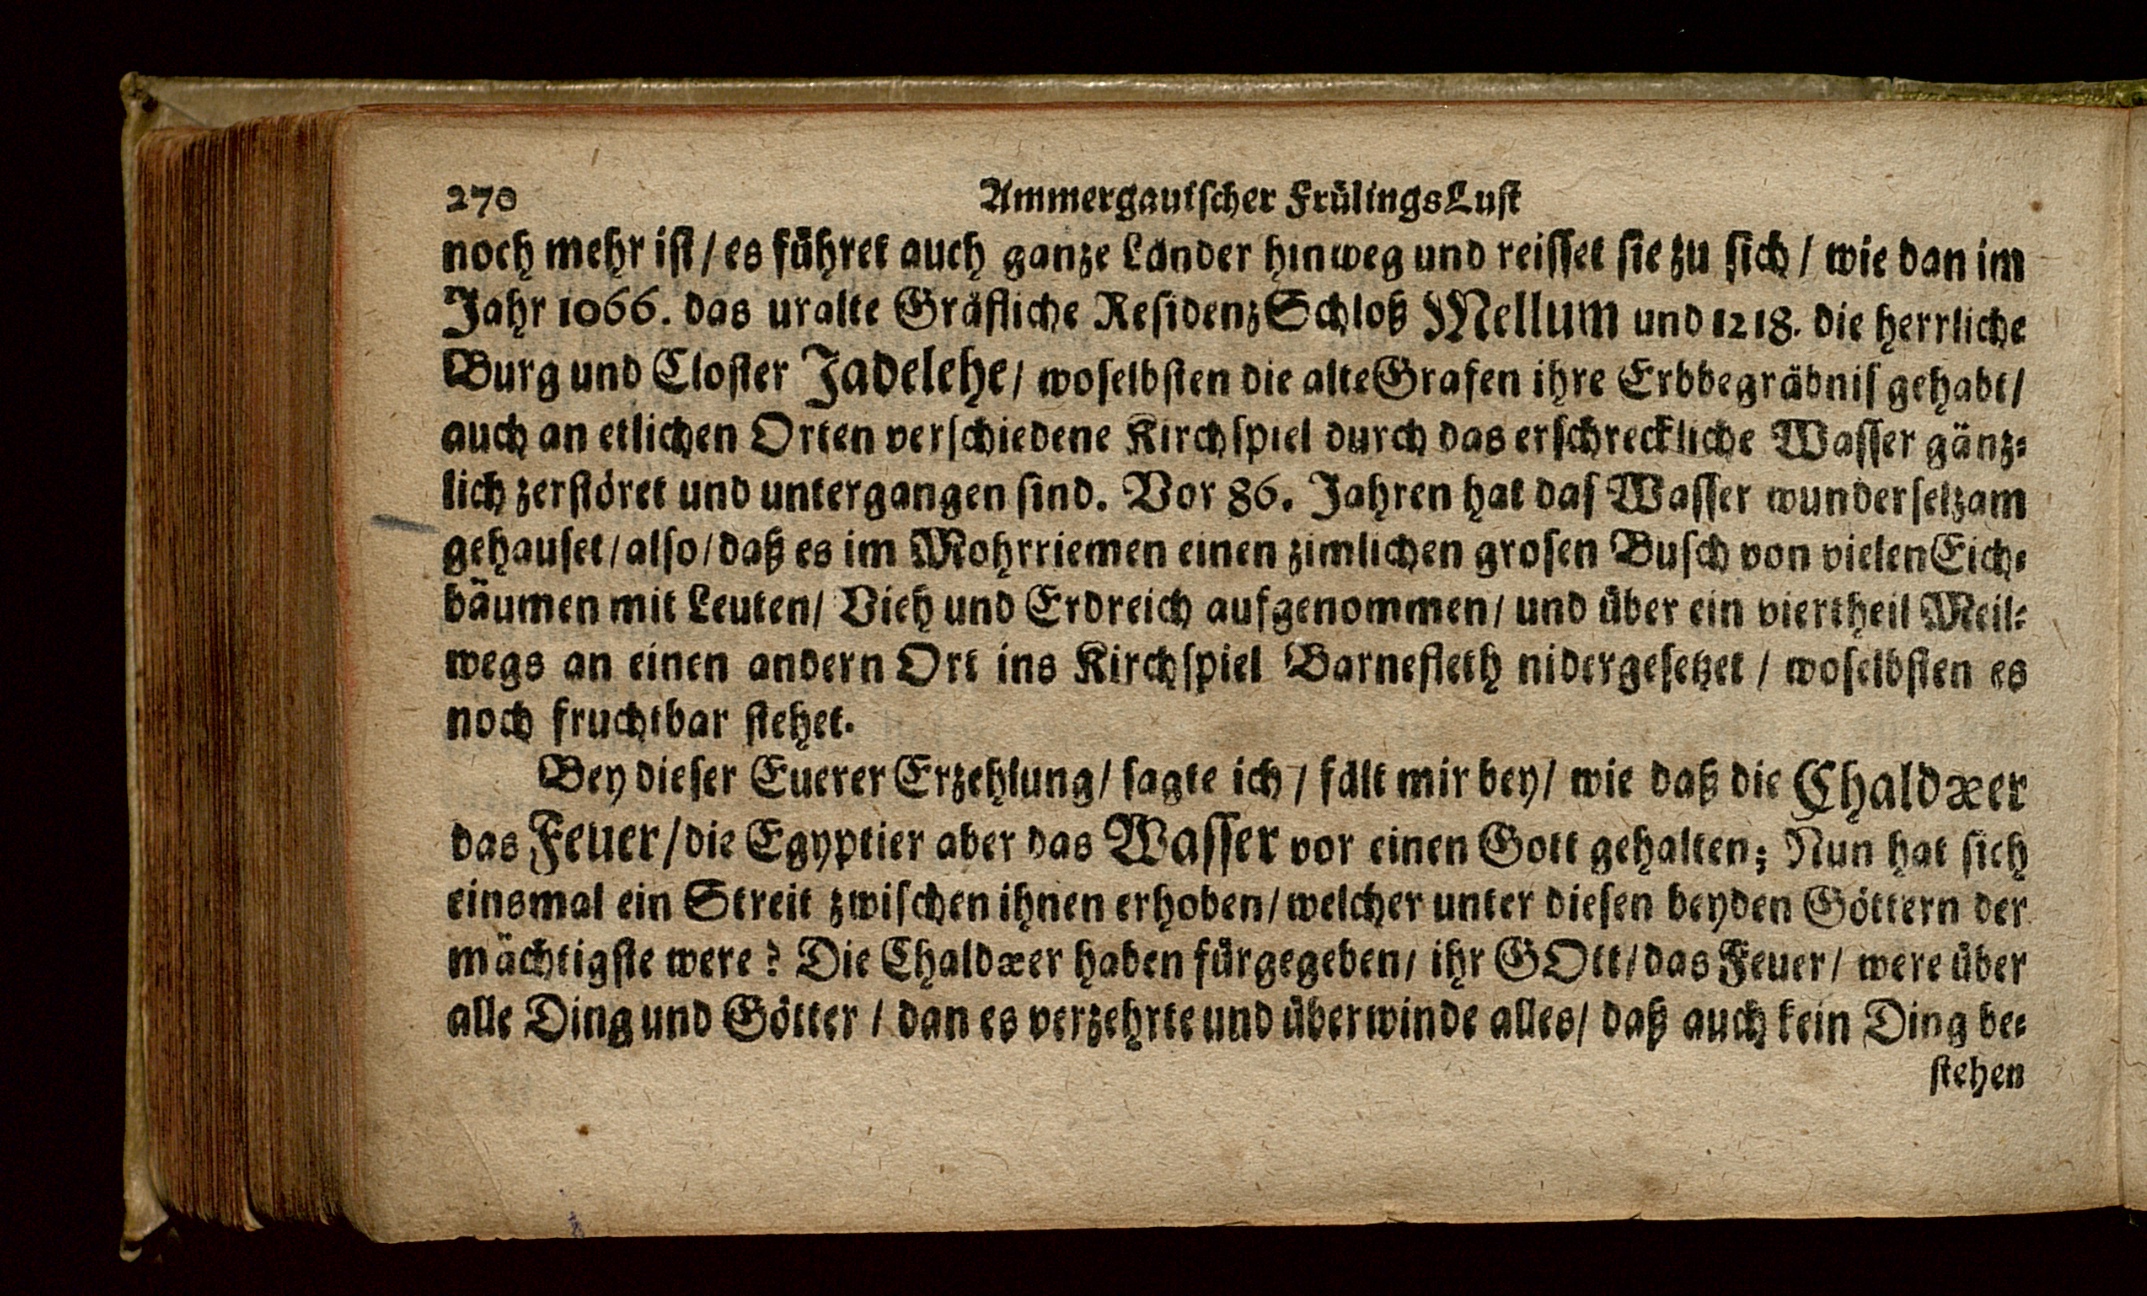 270 Ammergauischer FrülingsLust
noch mehr ist / es führet auch ganze Länder hinweg und reisset sie zu sich / wie dan im
Jahr 1066. das uralte Gräfliche ResidenzSchloß Mellum und 1218. die herrliche
Burg und Closter Jadelehe / woselbsten die alte Grafen ihre Erbbegräbnis gehabt /
auch an etlichen Orten verschiedene Kirchspiel durch das erschreckliche Wasser gänz-
lich zerstöret und untergangen sind. Vor 86. Jahren hat das Wasser wunderselzam
gehauset / also / daß es im Mohrriemen einen zimlichen grosen Busch von vielen Eich-
bäumen mit Leuten / Vieh und Erdreich aufgenommen / und über ein viertheil Meil-
wegs an einen andern Ort ins Kirchspiel Barnefleth nidergesetzet / woselbsten es
noch fruchtbar stehet.
Bey dieser Euerer Erzehlung / sagte ich / fält mir bey / wie daß die Chaldæer
das Feuer / die Egyptier aber das Wasser vor einen Gott gehalten; Nun hat sich
einsmal ein Streit zwischen ihnen erhoben / welcher unter diesen beyden Göttern der
mächtigste were? Die Chaldæer haben fürgegeben / ihr GOtt / das Feuer / were über
alle Ding und Götter / dan es verzehrte und überwinde alles / daß auch kein Ding be-
stehen